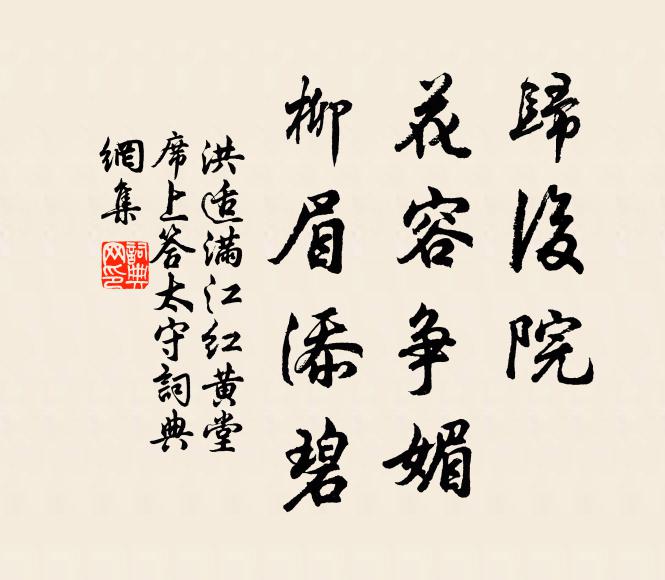 歸後院
花容争媚
柳眉添碧
洪适滿江红黄堂
席上答太守詞典
網集
詞典
网印